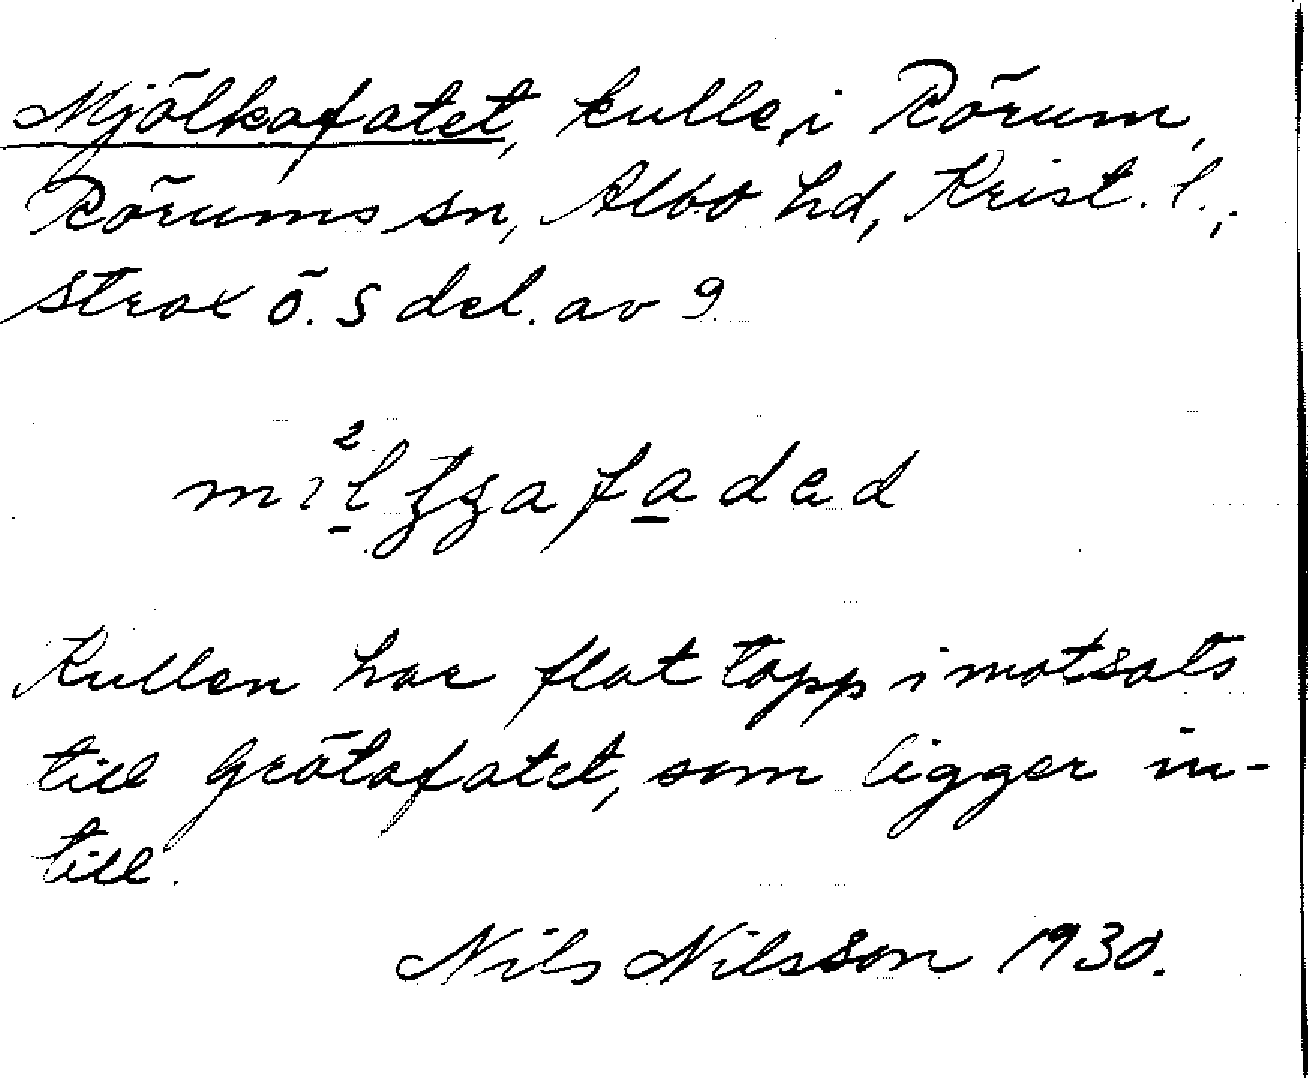 Mjölkafatet, kulle, i Rörum,
Rörums sn, Albo hd, Krist. l.,
strax ö. S del. av 9
Kullen har flat topp i motsats
till Grötafatet, som ligger in-
till.
Nils Nilsson 1930.